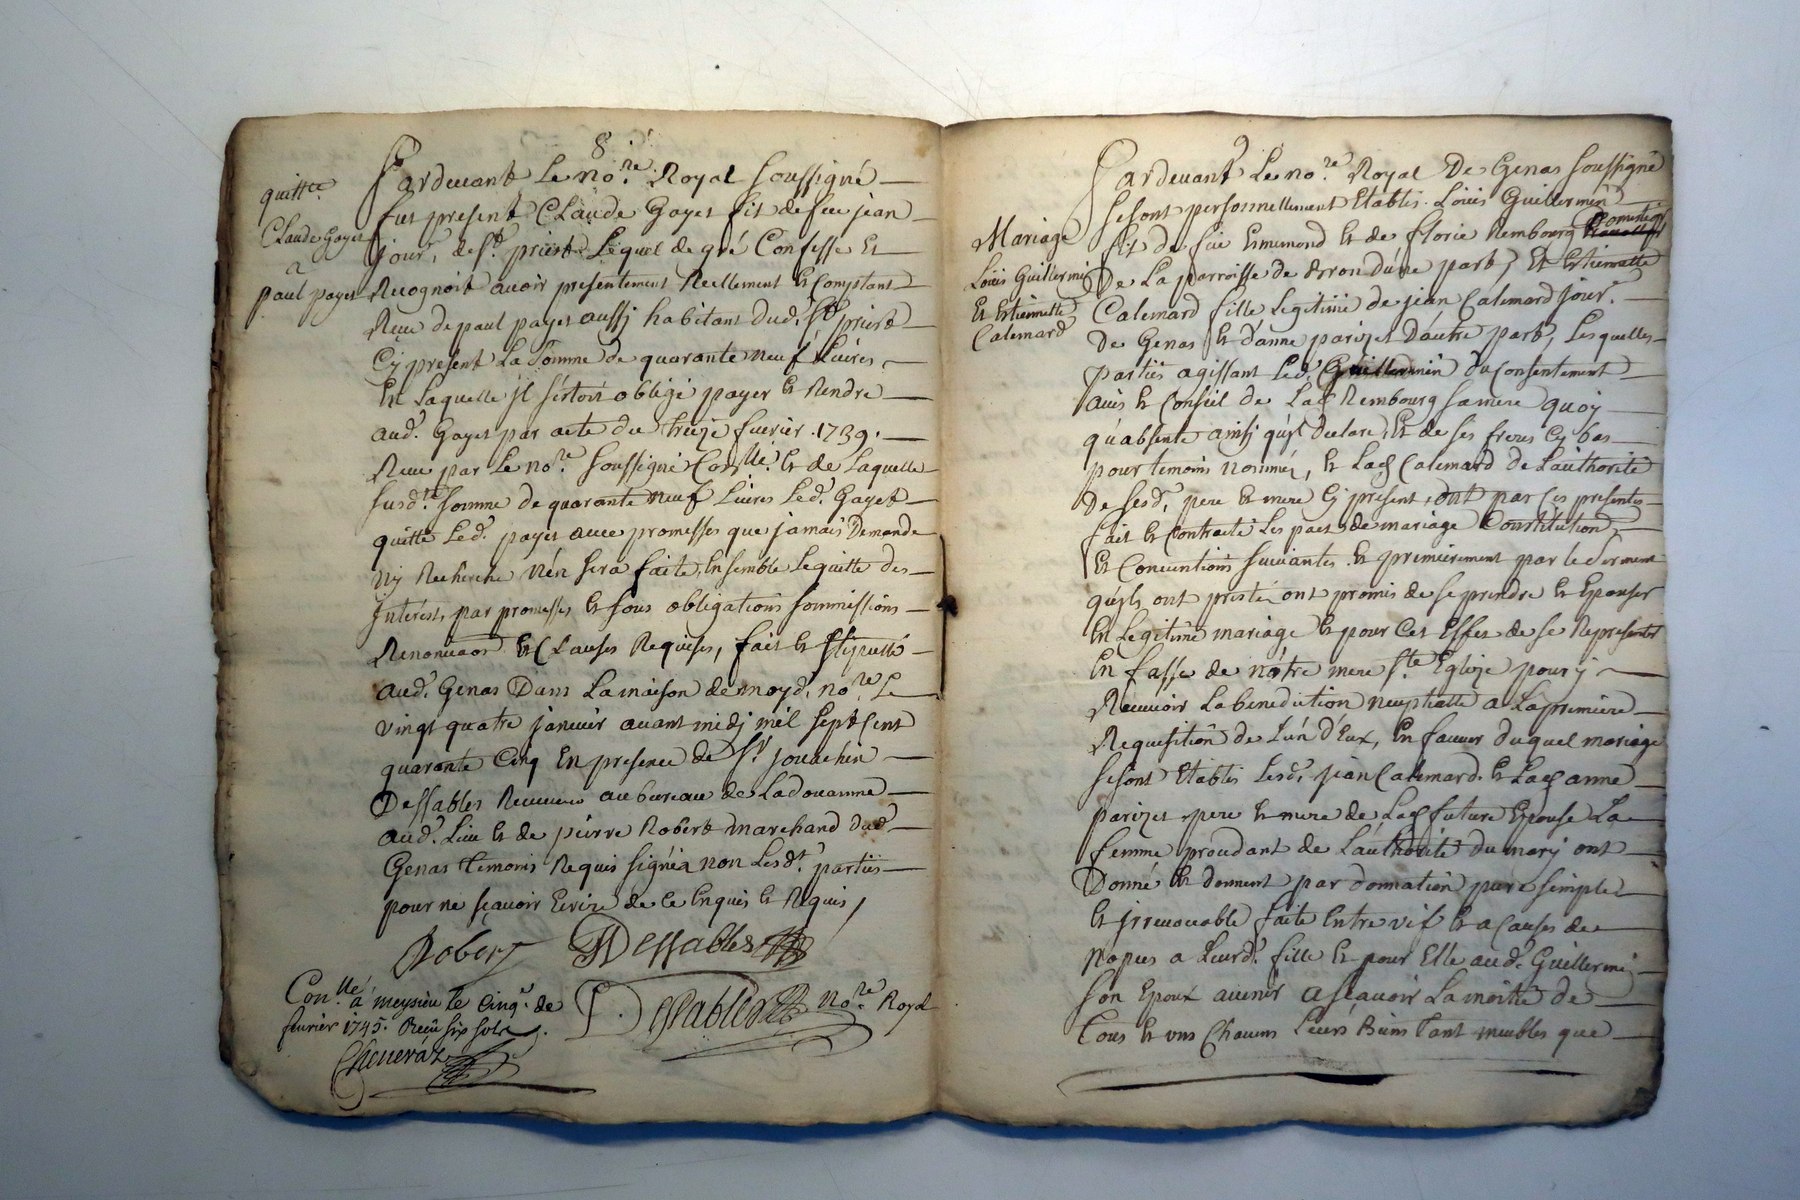 8
quitt.ce
Claude Gayet
a
paul payet
Pardevant Le no.re Royal soussigné
fut present Claude Gayet fils de feu jean
jour.r de S.t priest Lequel de gré Confesse Et
Recognoit avoir presentement Reellement Et Comptant
Reçu de paul payet aussy habitant dud. S.t priest
Cy present La somme de quarante neuf Livres
En Laquelle il s'étoit obligé payer Et Rendre
aud. Gayet par acte du treize fevrier 1739.
Reçu par Le no.re soussigné Con.llé Et de Laquelle
susd.te somme de quarante neuf Livres Led. Gayet
quitte Led. payet avec promesses que jamais Demande
ny Recherche n'en sera faite, Ensemble Le quitte des
Interests, par promesses Et sous obligations soumissions
Renonciaõns Et Clauses Requises, fait Et stipullé
aud. Genas Dans La maison de moyd. no.re Le
vingt quatre janvier avant midy mil sept Cent
quarante Cinq En presence de S.r jouachin
Dessables Receveur au bureau de La douanne
aud. Lieu Et de pierre Robert marchand dud.
Genas temoins Requis signés non Lesd.t parties
pour ne sçavoir Ecrire de ce Enquis Et Requis,
Robert Dessables
Con.llé a meysieu le cinq.e de
fevrier 1745. Reçu six sols.
Cheneraz
Dessables no.re Royal
9
Mariage
Loüis Guillermin
Et Etiennette
Calemard
Pardevant Le no.re Royal De Genas soussigné
se sont personnellement Etablis Loüis Guillermin
fils de feu Emmond Et de florie Rembourg Domestiq
De La parroisse de d'une part, Et Etiennette
Calemard fille Legitime de jean Calemard jour.r
De Genas Et d'anne parizet D'autre part, Lesquelles
parties agissant Led. Guillermin du Consentement
avis Et Conseil de Lad Rembourg sa mere quoy
qu'absente ainsy qu'il declare, Et de ses freres Cy bas
pour temoins nommés, Et Lad Calemard de L'authorité
De sesd. pere Et mere Cy present, ont par Ces presentes
fait Et Contracté Les pact de mariage Constitution
Et Conventions suivantes. Et premierement par le serment
qu'ils ont presté, ont promis de se prendre Et Epouser
En Legitime mariage Et pour Cet Effet de se Representer
En fasse de nôtre mere S.te Eglize pour y
Recevoir La benediction neuptialle a La premiere
Requisition de L'un d'Eux, En faveur duquel mariage
se sont Etablis Lesd. jean Calemard Et Lad anne
parizet pere Et mere de Lad future Epouse La
femme procedant de L'authorité du mary ont
Donné Et donnent par donnation pure simple
Et irrevocable faite Entre vif Et a Causes de
nopces a Leurd. fille Et pour Elle aud. Guillermin
son Epoux avenir a sçavoir La moitié de
tous Et uns Chacuns Leurs Biens tant meubles que